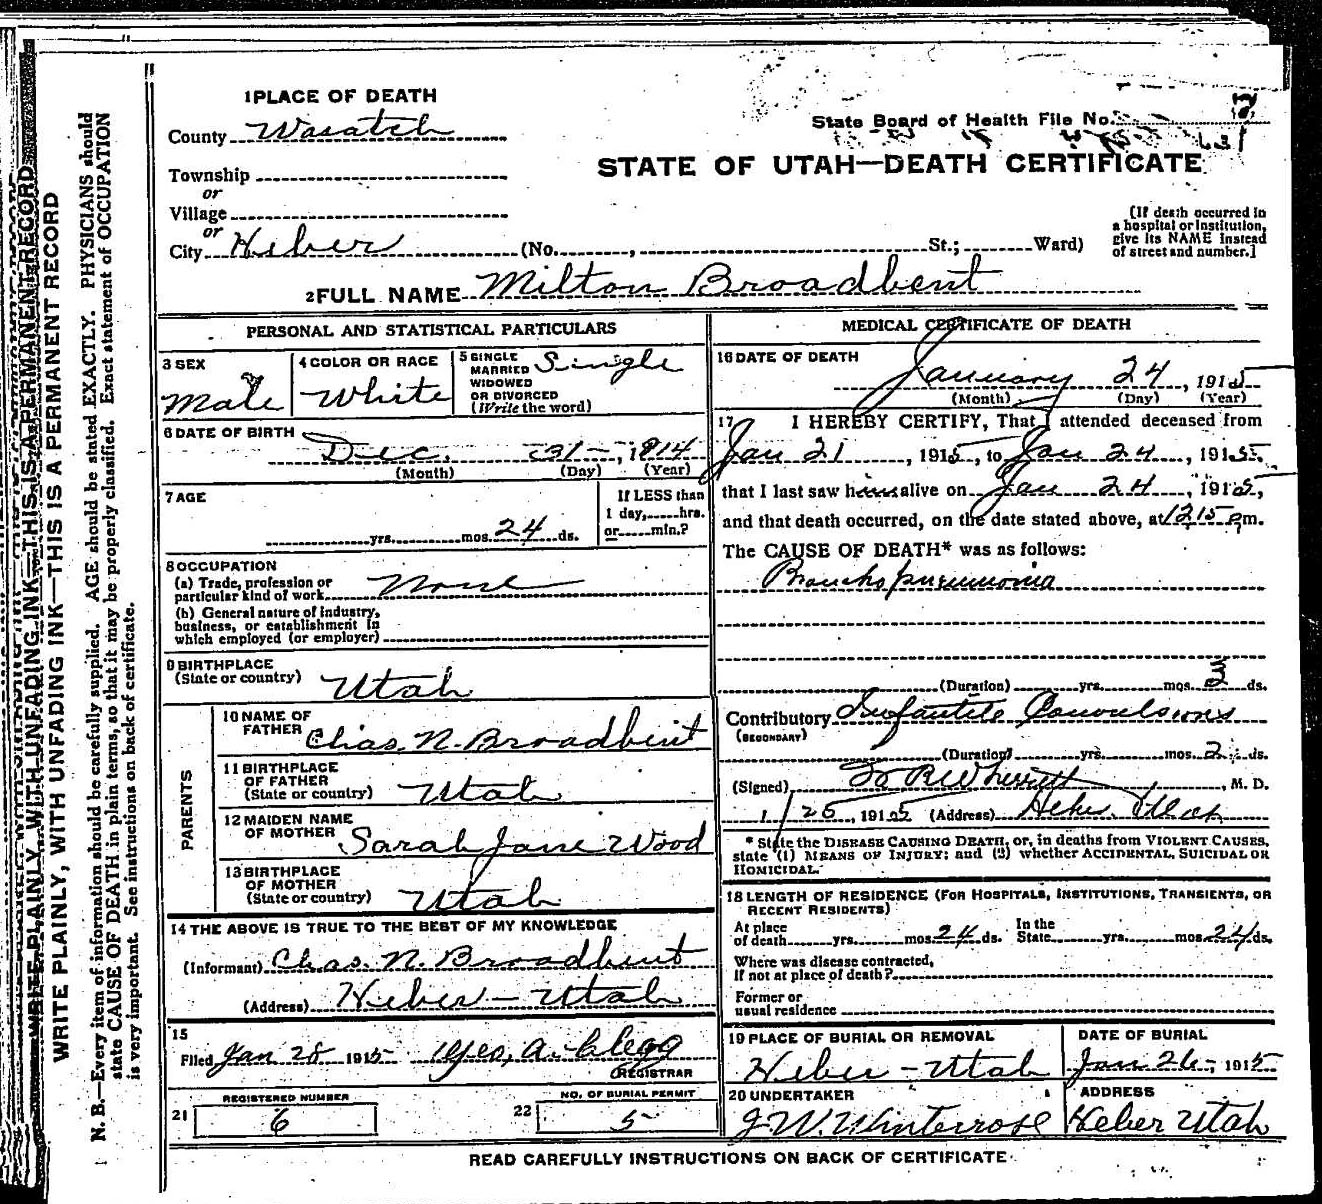 1 PLACE OF DEATH
County Wasatch
State Board of Health File No.
STATE OF UTAH—DEATH CERTIFICATE
Township
or
Village
or
City Heber (No. , St.; Ward)
(If death occurred in
a hospital or institution,
give its NAME instead
of street and number.]
2 FULL NAME Milton Broadbent
PERSONAL AND STATISTICAL PARTICULARS
3 SEX
Male
4 COLOR OR RACE
White
5 SINGLE
MARRIED
WIDOWED
OR DIVORCED
(Write the word)
Single
6 DATE OF BIRTH
Dec. 31 - , 1914
(Month) (Day) (Year)
7 AGE
yrs. mos. 24 ds.
If LESS than
1 day, hrs.
or min.?
8 OCCUPATION
(a) Trade, profession or
particular kind of work None
(b) General nature of industry,
business, or establishment in
which employed (or employer)
9 BIRTHPLACE
(State or country) Utah
PARENTS
10 NAME OF
FATHER Chas. N. Broadbent
11 BIRTHPLACE
OF FATHER
(State or country) Utah
12 MAIDEN NAME
OF MOTHER Sarah Jane Wood
13 BIRTHPLACE
OF MOTHER
(State or country) Utah
14 THE ABOVE IS TRUE TO THE BEST OF MY KNOWLEDGE
(Informant) Chas. N. Broadbent
(Address) Heber - Utah
15
Filed Jan 28 1915 Geo. A. Clegg
REGISTRAR
21 REGISTERED NUMBER
6
22 NO. OF BURIAL PERMIT
5
MEDICAL CERTIFICATE OF DEATH
16 DATE OF DEATH
January 24, 1915
(Month) (Day) (Year)
17 I HEREBY CERTIFY, That I attended deceased from
Jan 21, 1915, to Jan 24, 1915.
that I last saw him alive on Jan 24, 1915,
and that death occurred, on the date stated above, at 12 15 pm.
The CAUSE OF DEATH* was as follows:
Broncho pneumonia
(Duration) yrs. mos. 3 ds.
Contributory Infantile Convulsions
(SECONDARY)
(Duration) yrs. mos. 2 ds.
(Signed) M. D.
1/25, 1915 (Address) Heber, Utah
* State the DISEASE CAUSING DEATH, or, in deaths from VIOLENT CAUSES,
state (1) MEANS OF INJURY; and (2) whether ACCIDENTAL, SUICIDAL OR
HOMICIDAL.
18 LENGTH OF RESIDENCE (FOR HOSPITALS, INSTITUTIONS, TRANSIENTS, OR
RECENT RESIDENTS)
At place
of death yrs. mos. 24 ds.
In the
State yrs. mos. 24 ds.
Where was disease contracted,
if not at place of death?
Former or
usual residence
19 PLACE OF BURIAL OR REMOVAL
Heber - Utah
DATE OF BURIAL
Jan 26, 1915
20 UNDERTAKER
J W. Winterrose
ADDRESS
Heber Utah
READ CAREFULLY INSTRUCTIONS ON BACK OF CERTIFICATE
WRITE PLAINLY, WITH UNFADING INK—THIS IS A PERMANENT RECORD
N. B.—Every item of information should be carefully supplied. AGE should be stated EXACTLY. PHYSICIANS should
state CAUSE OF DEATH in plain terms, so that it may be properly classified. Exact statement of OCCUPATION
is very important. See instructions on back of certificate.